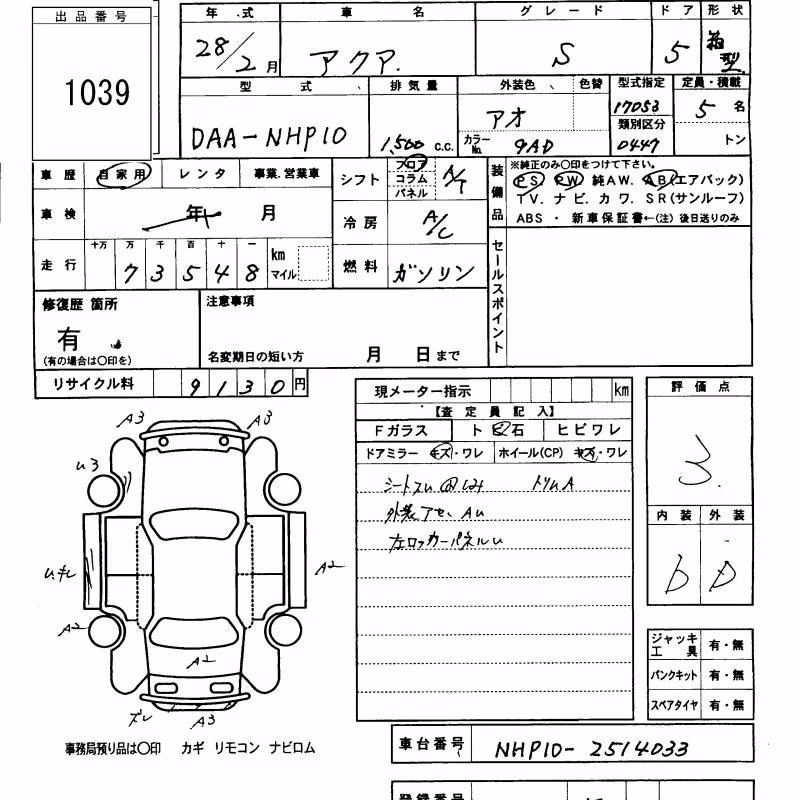 出品番号
1039
年 式 車 名 グレード ドア 形状
28/2月 アクア S 5 箱型
型 式 排気量 外装色 色替 型式指定 定員・積載
DAA-NHP10 1,500 c.c. アオ 17053 5名
カラーNo. 9AD 類別区分 0447 トン
車歴 自家用 レンタ 事業.営業車
シフト フロア コラム パネル A/T
装備品 ※純正のみ〇印をつけて下さい。
PS. PW. 純AW. AB(エアバック)
TV. ナビ. カワ. SR(サンルーフ)
ABS ・ 新車保証書←(注) 後日送りのみ
車検 年 月
冷房 A/C
走行 十万 万 千 百 十 一 km マイル
73548
燃料 ガソリン
セールスポイント
修復歴 箇所 注意事項
有
(有の場合は〇印を) 名変期日の短い方 月 日まで
リサイクル料 9130円
現メーター指示 km
【査定員記入】
Fガラス トビ石 ヒビワレ
ドアミラー キズ・ワレ ホイール(CP) キズ・ワレ
シートスレ シミ トリムA
外装アセ、AU
左ロッカーパネルU
評価点
3
内装 外装
b D
A3 A3
U3
U.キレ A2
A2
A2
ズレ A3
ジャッキ工具 有・無
パンクキット 有・無
スペアタイヤ 有・無
事務局預り品は〇印 カギ リモコン ナビロム
車台番号 NHP10-2514033
登録番号